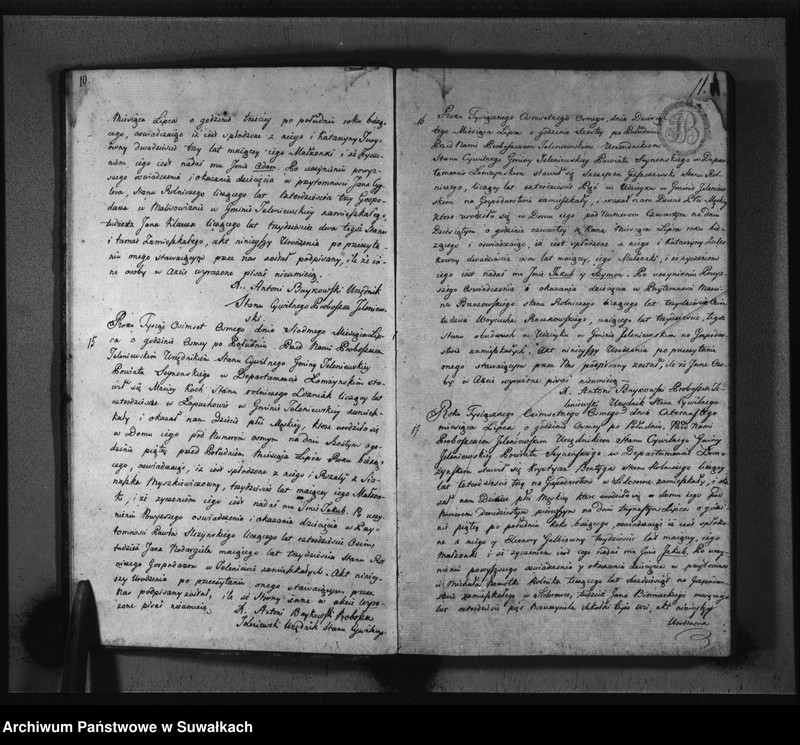 10.
Miesiąca Lipca o godzinie trzeciey po południu roku bieżą-
cego, oświadczaiąc iż iest spłodzone z niego i Katarzyny
dwadzieścia trzy lat maiącey iego Małżonki, i iż życze-
niem iego iest nadać mu Jmie Adam. Po uczynieniu powyż-
szego oświadczenia i okazania dziecięcia w przytomności Jana
Stanu Rolniczego liczącego lat czterdzieści trzy Gospo-
darza w Malesowiznie w Gminie Jeleniewskiey zamieszkałego,
tudzież Jana Klausa liczącego lat trzydzieście dwa tegoż Stanu
i tamże Zamieszkałego, akt ninieyszy Urodzenia po przeczyta-
niu onego stawaiącym przez nas został podpisany, ile że in-
ne osoby w Akcie wyrażone pisać nieumieią.
X. Antoni Buykowski Urzędnik
Stanu Cywilnego Proboszcz Jeleniew-
ski.
15
Roku Tysiąc Osmset Osmego dnia Siodmego Miesiąca Lip-
ca o godzinie Osmey po Południu. Przed Nami Proboszczem
Jeleniewskim Urzędnikiem Stanu Cywilnego Gminy Jeleniewskiey
Powiatu Seynenskiego w Departamencie Łomżyńskim sta-
wił się Maciey Koch Stanu rolniczego liczący lat
czterdzieście w Łopuchowie w Gminie Jeleniewskiey zamiesz-
kały i okazał nam Dziecię płci Męskiey, które urodziło się
w Domu iego pod Numerem osmym na dniu Szostym o go-
dzinie piątey przed Południem Miesiąca Lipca Roku bieżą-
cego, oświadczaiąc, iż iest spłodzone z niego i Rozalij z
Myszkiewiczowny, trzydzieście lat maiącey iego Małżon-
ki, i że życzeniem iego iest nadać mu Jmie Jakub. Po uczy-
nieniu Powyższego oświadczenia i okazania dziecięcia w Przy-
tomności Pawła Steczynskiego Liczącego lat czterdzieście Osm,
tudzież Jana maiącego lat trzydzieścia Stanu Rol-
niczego Gospodarzow w Jeleniewie zamieszkałych. Akt niniey-
szy Urodzenia po przeczytaniu onego stawaiącym, przez
Nas podpisany został, ile że Strony inne w akcie wyra-
żone pisać nieumieią.
X. Antoni Buykowski Proboszcz
Jeleniewski Urzędnik Stanu Cywilnego.
11.
16
Roku Tysiącznego Osmsetnego Osmego, dnia Dziesią-
tego Miesiąca Lipca o godzinie Szostey po Południu
Przed Nami Proboszczem Jeleniewskim Urzędnikiem
Stanu Cywilnego Gminy Jeleniewskiey Powiatu Seynenskiego w Depar-
tamencie Łomżynskim stawił się Szczepan Stanu Rol-
niczego, liczący lat czterdzieście Pięć w Udzieyku w Gminie Jeleniew-
skiey na Gospodarstwie zamieszkały, i okazał nam Dziecię Płci Męskiey
które urodziło się w Domu iego pod Numerem Czwartym na dniu
Dziesiątym o godzinie czwartey z Rana Miesiąca Lipca roku bie-
żącego i oświadczaiąc, że iest spłodzone z niego i Katarzyny
dwadzieścia osm lat maiącey, iego Małżonki, i że życzeniem
iego iest nadać mu Jmie Jakub y Szymon. Po uczynieniu Powyż-
szego Oświadczenia i okazania dziecięcia w Przytomności
Brozowskiego Stanu Rolniczego liczącego lat trzydzieści
tudzież Woyciecha maiącego lat trzydzieście, tegoż
Stanu obudwoch w Udzieyku w Gminie Jeleniewskim na Gospodar-
stwie zamieszkałych. Akt ninieyszy Urodzenia po przeczytaniu
onego stawaiącym przez Nas podpisany został, ile że Jnne Oso-
by w Akcie wyrażone pisać nieumieią.
X. Antoni Buykowski Proboszcz Je-
leniewski Urzędnik Stanu Cywilnego.
17
Roku Tysiącznego Osmsetnego Osmego dnia Czternastego
miesiąca Lipca o godzinie Osmey po Południu, Przed Nami
Proboszczem Jeleniewskim Urzędnikiem Stanu Cywilnego Gminy
Jeleniewskiey Powiatu Seynenskiego w Departamencie Łom-
żyńskim stawił się Krystyan Stanu Rolniczego liczący
lat czterdzieście trzy na Gospodarstwie w Sidorowie zamieszkały, i oka-
zał nam Dziecię płci Męskiey które urodziło się w domu iego pod
Numerem dwudziestym pierwszym na dniu trzynastym Lipca o godzi-
nie piątey po południu Roku bieżącego, oświadczaiąc iż iest spłodzo-
ne z niego y Eleonory trzydzieście lat maiącey, iego
Małżonki i iż życzeniem iego iest nadać mu Jmie Jakub, Po uczy-
nieniu powyższego oświadczenia y okazania dziecięcia w przytomnoś-
ci Michała Rolnika liczącego lat na Gospodar-
stwie zamieszkałego w Sidorowie, tudzież Jana Biernackiego maiącego
lat czterdzieście pięć teyże wsi, akt ninieyszy
Urodzenia
Archiwum Państwowe w Suwałkach